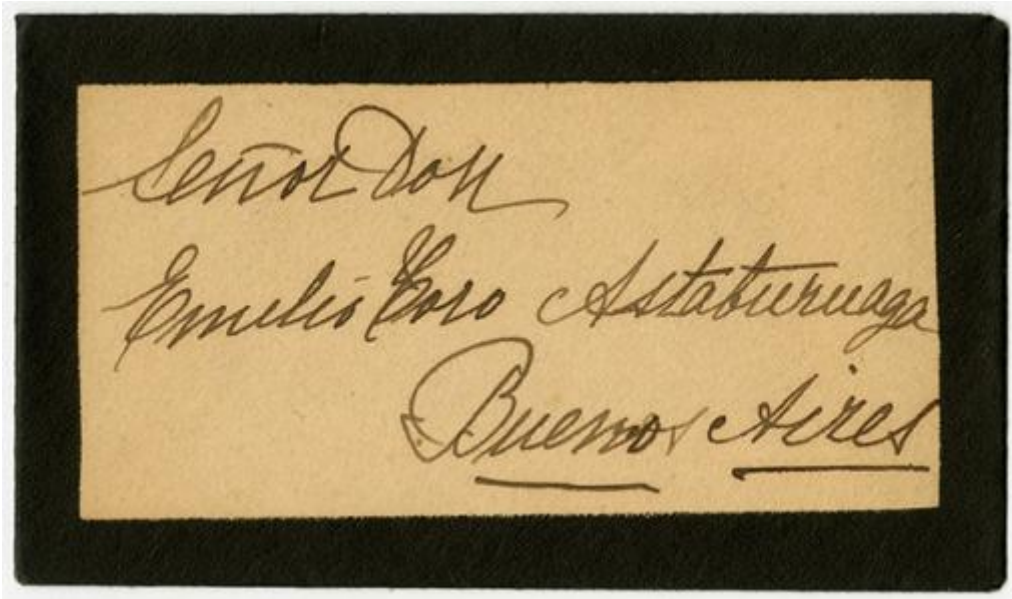 Señor Don
Emilio Toro Astaburuaga
Buenos Aires